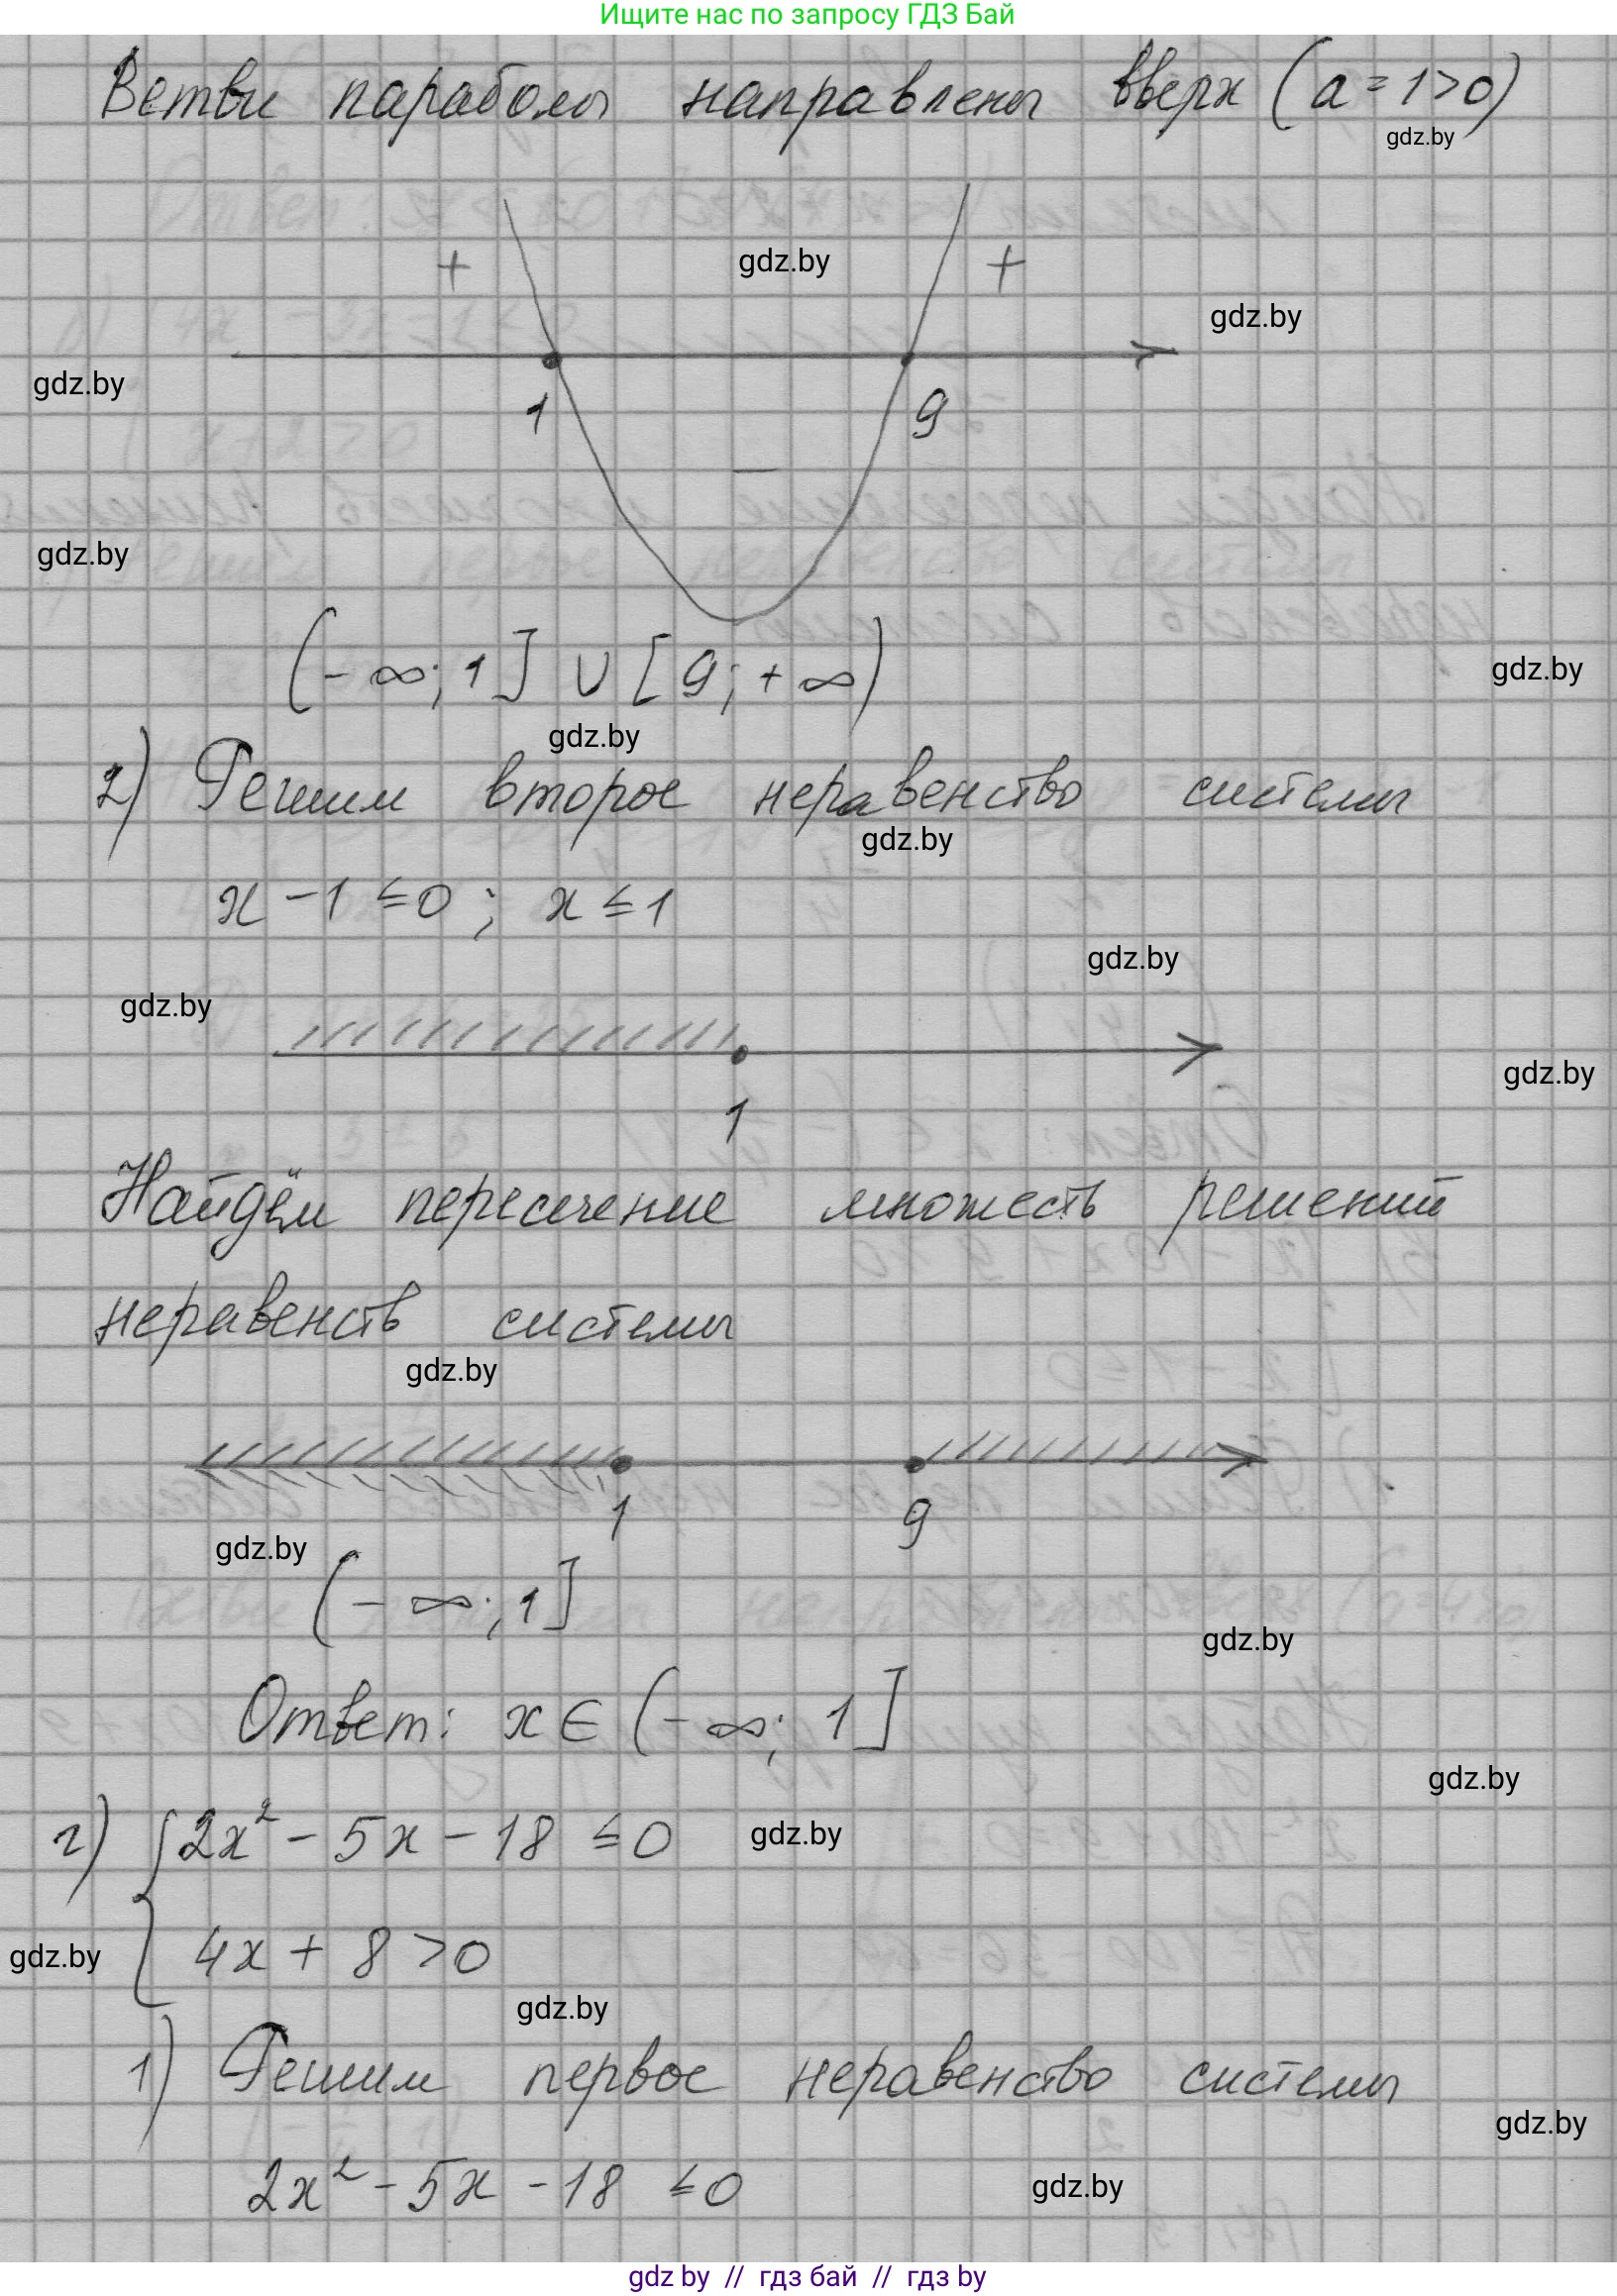 Ищите нас по запросу ГДЗ Бай
Ветви параболы направлены вверх (a = 1 > 0)
gdz.by
+ gdz.by +
gdz.by
gdz.by
1 9
−
gdz.by
(-∞; 1] ∪ [9; +∞)
gdz.by
gdz.by
2) Решим второе неравенство системы
gdz.by
x - 1 ≤ 0 ; x ≤ 1
gdz.by
gdz.by
gdz.by
1
Найдём пересечение множеств решений
неравенств системы
gdz.by
1 9
gdz.by
(-∞; 1]
gdz.by
Ответ: x ∈ (-∞; 1]
gdz.by
г) { 2x² - 5x - 18 ≤ 0
gdz.by
4x + 8 > 0
gdz.by
gdz.by
1) Решим первое неравенство системы
gdz.by
2x² - 5x - 18 ≤ 0
gdz.by
gdz by // гдз бай // гдз by